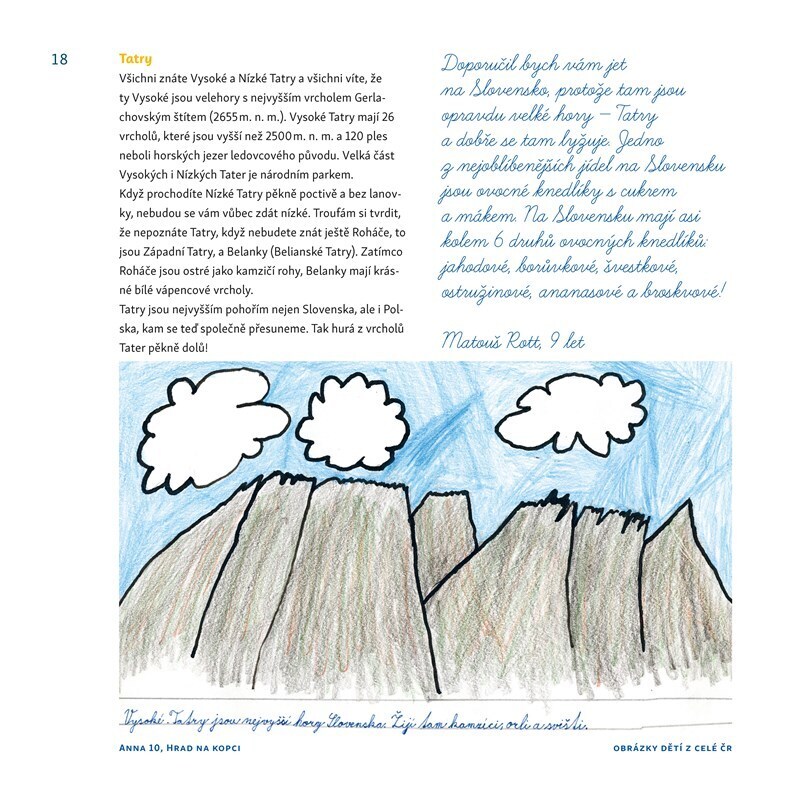 18
Tatry
Všichni znáte Vysoké a Nízké Tatry a všichni víte, že
ty Vysoké jsou velehory s nejvyšším vrcholem Gerla-
chovským štítem (2655 m. n. m.). Vysoké Tatry mají 26
vrcholů, které jsou vyšší než 2500 m. n. m. a 120 ples
neboli horských jezer ledovcového původu. Velká část
Vysokých i Nízkých Tater je národním parkem.
Když prochodíte Nízké Tatry pěkně poctivě a bez lanov-
ky, nebudou se vám vůbec zdát nízké. Troufám si tvrdit,
že nepoznáte Tatry, když nebudete znát ještě Roháče, to
jsou Západní Tatry, a Belanky (Belianské Tatry). Zatímco
Roháče jsou ostré jako kamzičí rohy, Belanky mají krás-
né bílé vápencové vrcholy.
Tatry jsou nejvyšším pohořím nejen Slovenska, ale i Pol-
ska, kam se teď společně přesuneme. Tak hurá z vrcholů
Tater pěkně dolů!
Doporučil bych vám jet
na Slovensko, protože tam jsou
opravdu velké hory – Tatry
a dobře se tam lyžuje. Jedno
z nejoblíbenějších jídel na Slovensku
jsou ovocné knedlíky s cukrem
a mákem. Na Slovensku mají asi
kolem 6 druhů ovocných knedlíků:
jahodové, borůvkové, švestkové,
ostružinové, ananasové a broskvové!
Matouš Rott, 9 let
Vysoké Tatry jsou nejvyšší hory Slovenska. Žijí tam kamzíci, orli a svišti.
Anna 10, Hrad na kopci
OBRÁZKY DĚTÍ Z CELÉ ČR